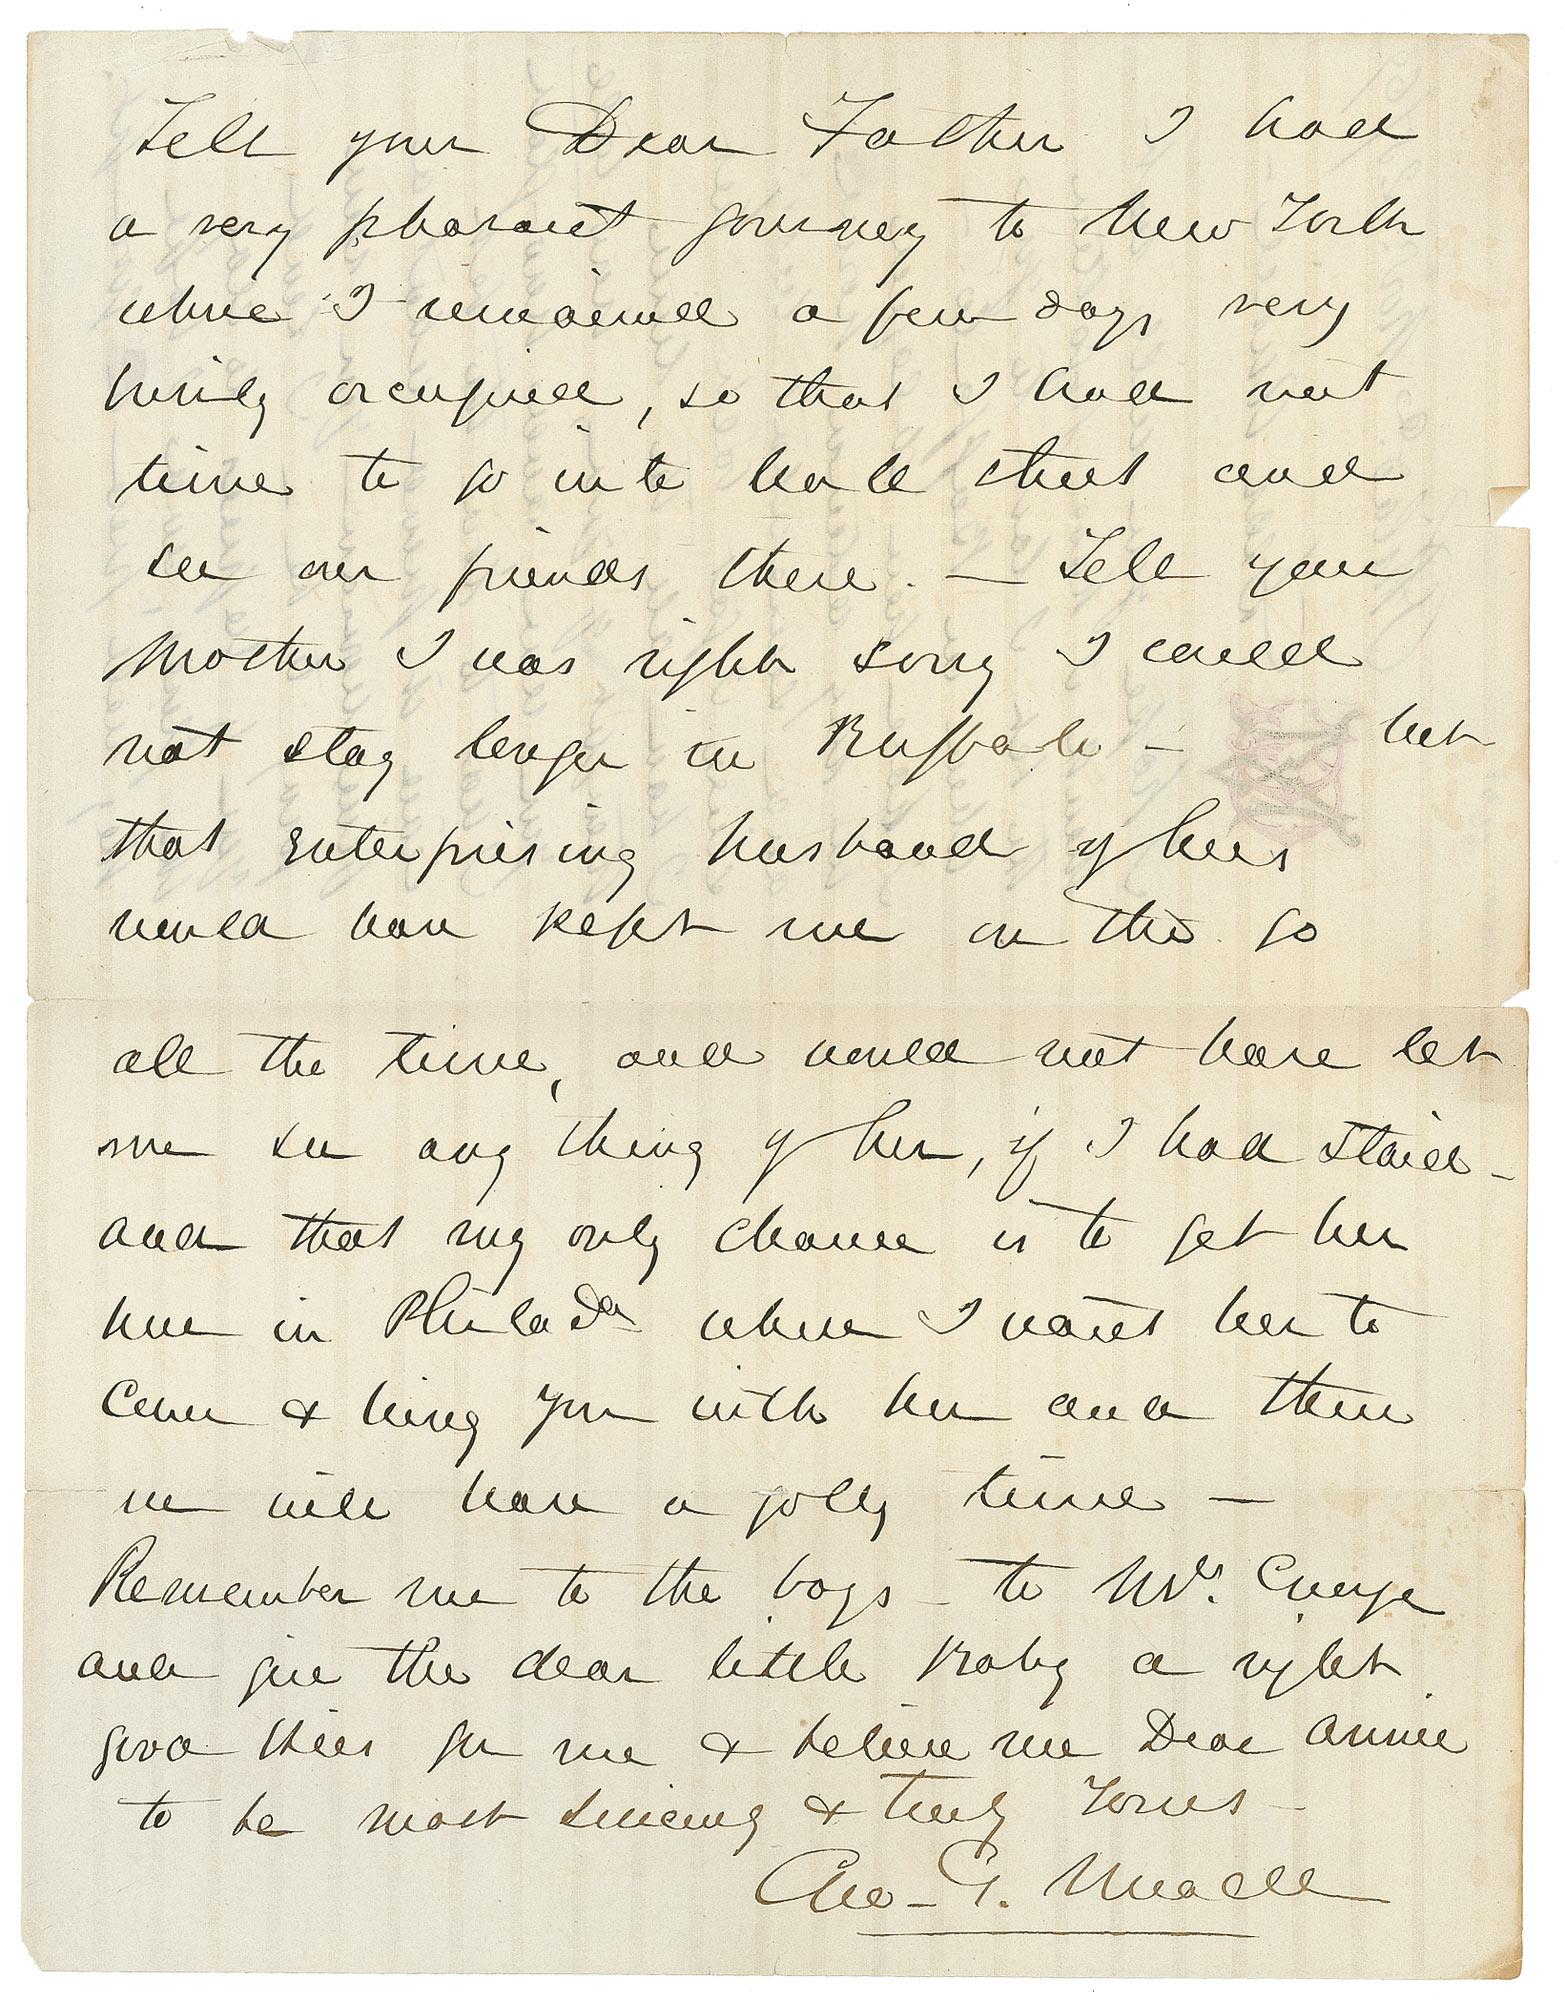 Tell your Dear Father I had
a very pleasant journey to New York
where I remained a few days very
busily occupied, so that I had not
time to go into Wall street and
see our friends there. — Tell your
Mother I was right sorry I could
not stay longer in Buffalo — but
that enterprising husband of hers
would have kept me on the go
all the time, and would not have let
me see any thing of her, if I had staid —
and that my only chance is to get her
here in Philada where I want her to
come & bring you with her and then
we will have a jolly time —
Remember me to the boys — to Mrs.
and give the dear little Baby a right
good kiss for me & believe me Dear Annie
to be most sincerely & truly Yours —
Geo. G. Meade